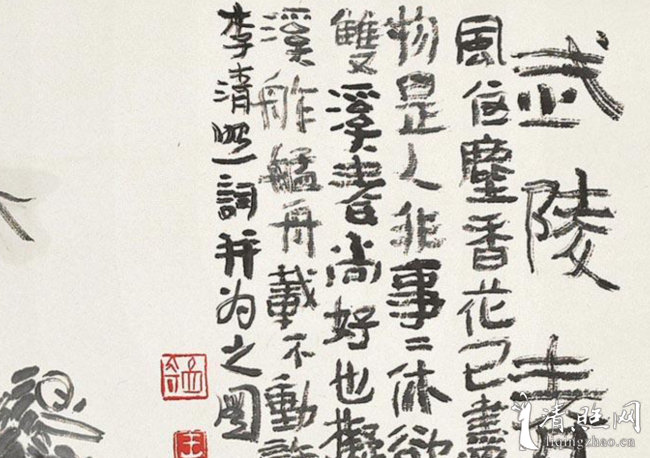 武陵春
風住塵香花已盡
物是人非事々休欲
雙溪春尚好也擬
溪舴艋舟載不動許
李清照詞并为之圖